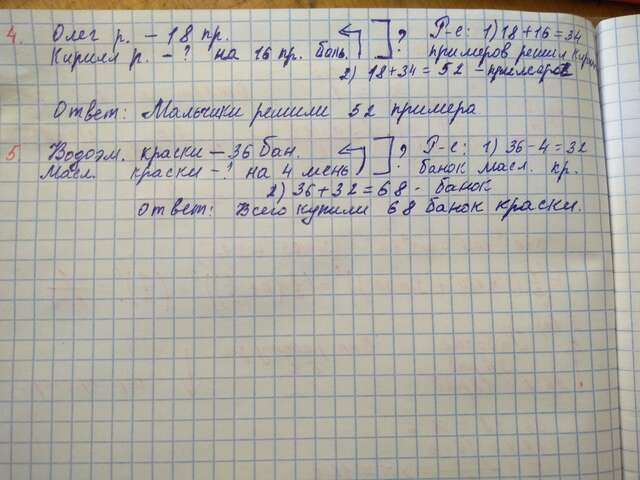 4. Олег р. – 18 пр. ? Р-е: 1) 18+16=34
Кирилл р. – ? на 16 пр. боль. примеров решил Кирилл
2) 18+34=52 – примеров
Ответ: Мальчики решили 52 примера
5. Водоэм. краски – 36 бан. ? Р-е: 1) 36-4=32
Масл. краски – ? на 4 мень банок масл. кр.
2) 36+32=68 - банок
Ответ: Всего купили 68 банок краски.